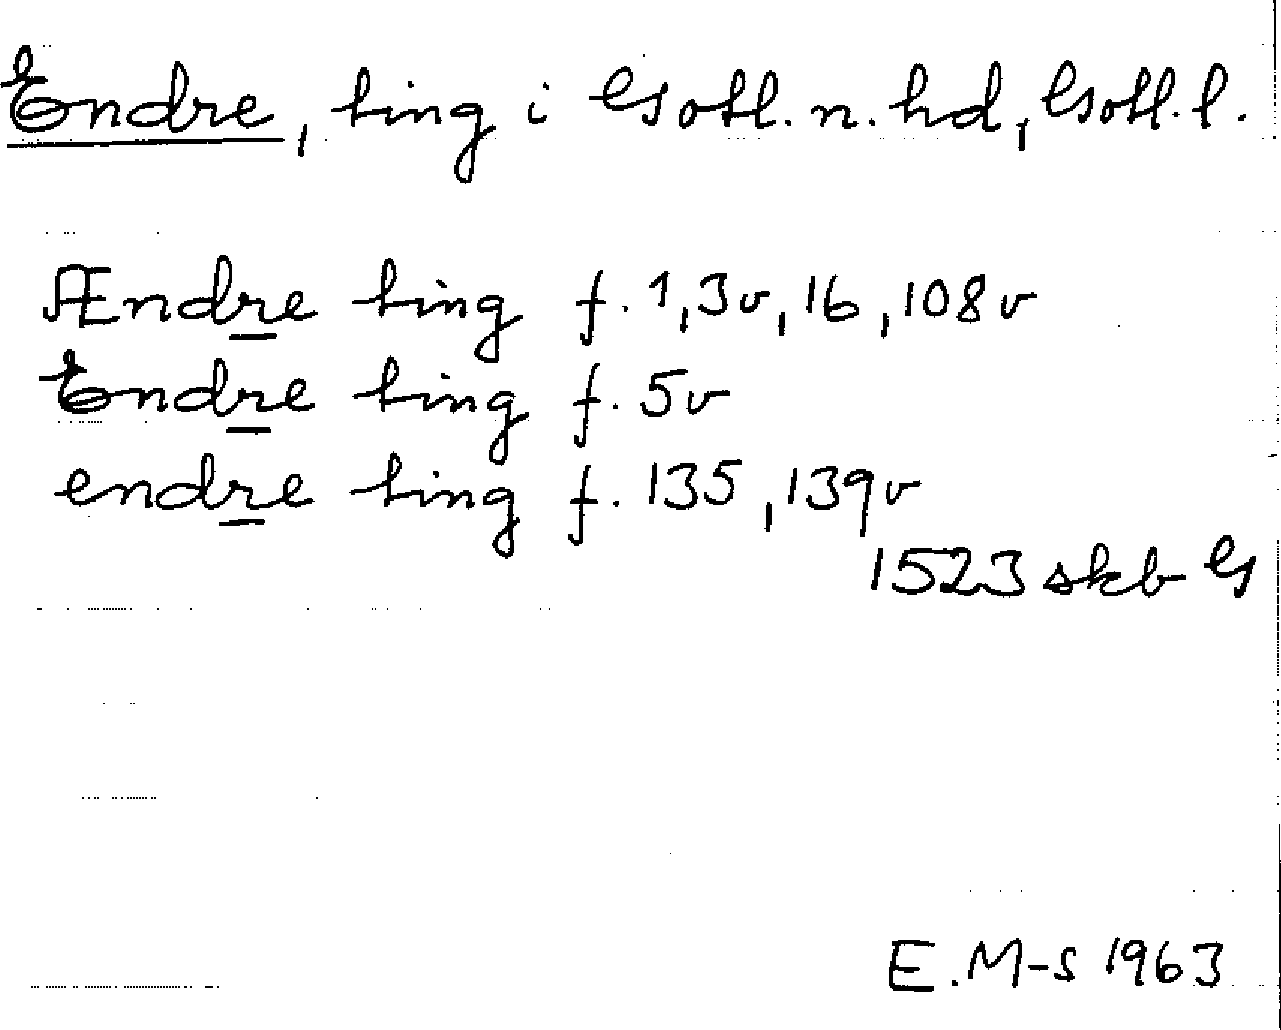 Endre, ting i Gotl. n. hd, Gotl. l.
Ændre ting f. 1, 3v, 16, 108v
Endre ting f. 5v
endre ting f. 135, 139v
1523 skb G
E. M-s 1963